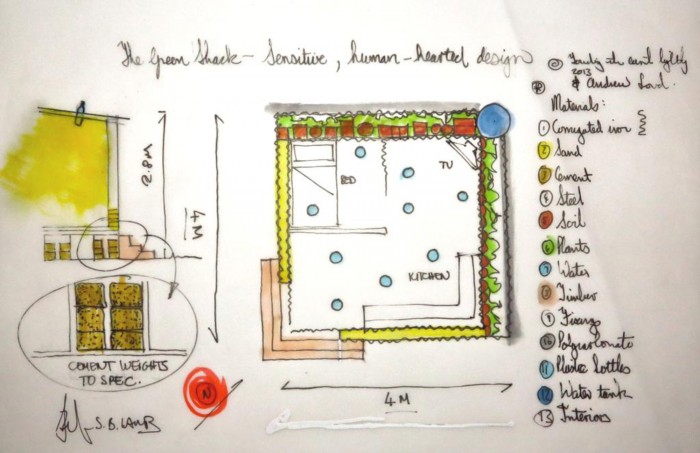 The Green Shack - Sensitive, human-hearted design
Touching the earth lightly
2013
& Andrew Lord.
Materials:
1 Corrugated iron
2 Sand
3 Cement
4 Steel
5 Soil
6 Plants
7 Water
8 Timber
9 Fixings
10 Polycarbonate
11 Plastic bottles
12 Water tank
13 Interiors
2.8M
4M
BED
TV
KITCHEN
CEMENT WEIGHTS
TO SPEC.
N
4M
S.B.LAMB